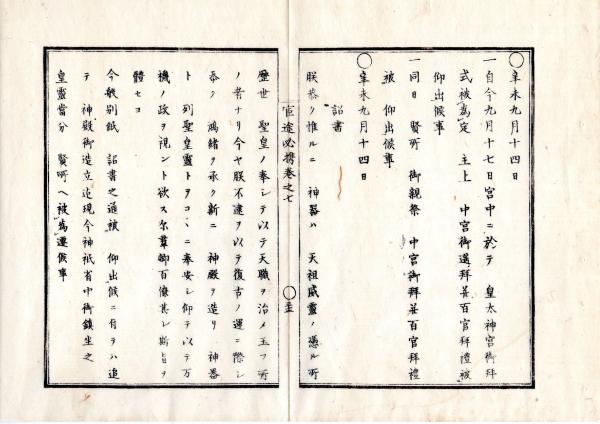 ◯辛未九月十四日
一自今九月十七日宮中ニ於テ　皇太神宮御拜
式被為定　主上　中宮御遥拜並百官拜禮被
仰出候事
一同日　賢所　御親祭　中宮御拜並百官拜禮
被　仰出候事
◯辛未九月十四日
詔書
朕恭ク惟ルニ　神器ハ　天祖威靈ノ憑ル所
官途必携巻之七
歴世　聖皇ノ奉シテ以テ天職ヲ治メ玉フ所
ノ者ナリ今ヤ朕不逮ヲ以テ復古ノ運ニ際シ
忝ク　鴻緒ヲ承ク新ニ　神殿ヲ造リ　神器
ト　列聖皇靈トヲコヽニ奉安シ仰テ以テ万
機ノ政ヲ視ント欲ス尓羣卿百僚其レ斯旨ヲ
體セヨ
今般別紙　詔書之通被　仰出候ニ有テハ追
テ　神殿御造立迄現今神祇省中御鎮坐之
皇靈當分　賢所ヘ被為遷候事